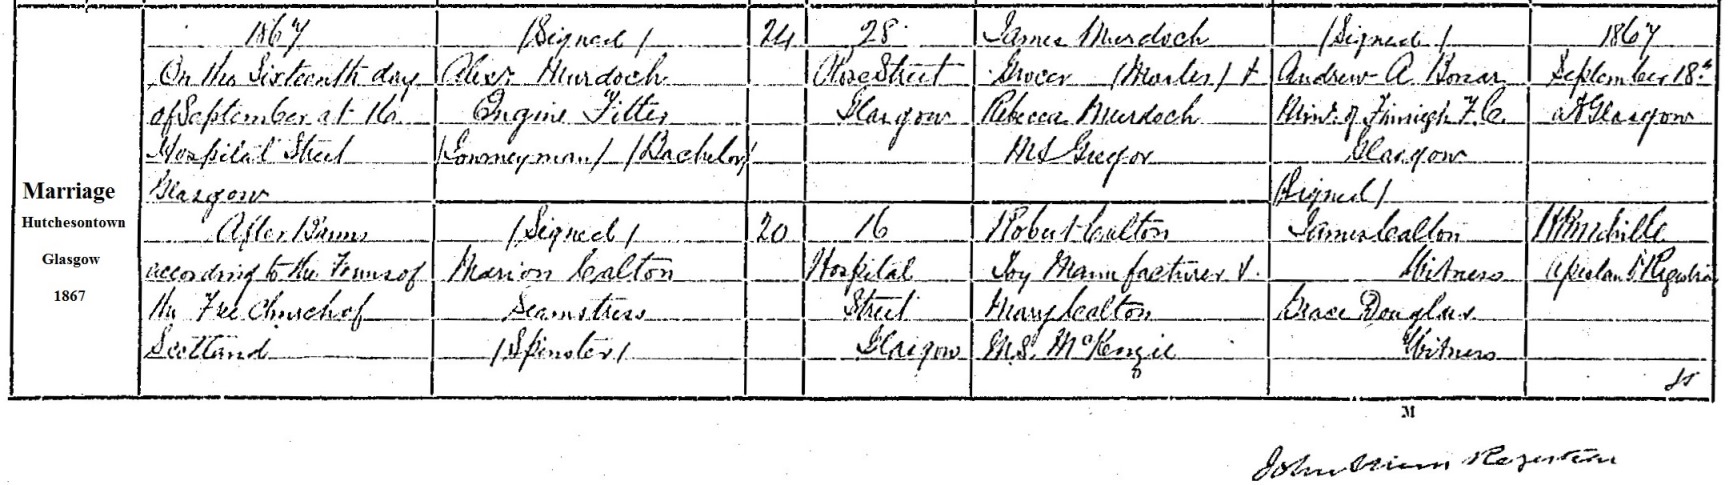 Marriage
Hutchesontown
Glasgow
1867
1867
On the Sixteenth day
of September at 16
Hospital Street
Glasgow
After Banns
according to the Forms of
the Free Church of
Scotland
(Signed)
Alexr Murdoch
Engine Fitter
(Journeyman) (Bachelor)
(Signed)
Marion Calton
Seamstress
(Spinster)
24
20
28
Rose Street
Glasgow
16
Hospital
Street
Glasgow
James Murdoch
Grocer (Master) &
Rebecca Murdoch
M.S. Gregor
Robert Calton
Toy Manufacturer &
Mary Calton
M.S. McKenzie
(Signed)
Andrew A. Bonar
Minr. of Finnieh F.C.
Glasgow
(Signed)
James Calton
Witness
Grace Douglas
Witness
1867
September 18th
At Glasgow
Assistant Registrar
M
John Registrar